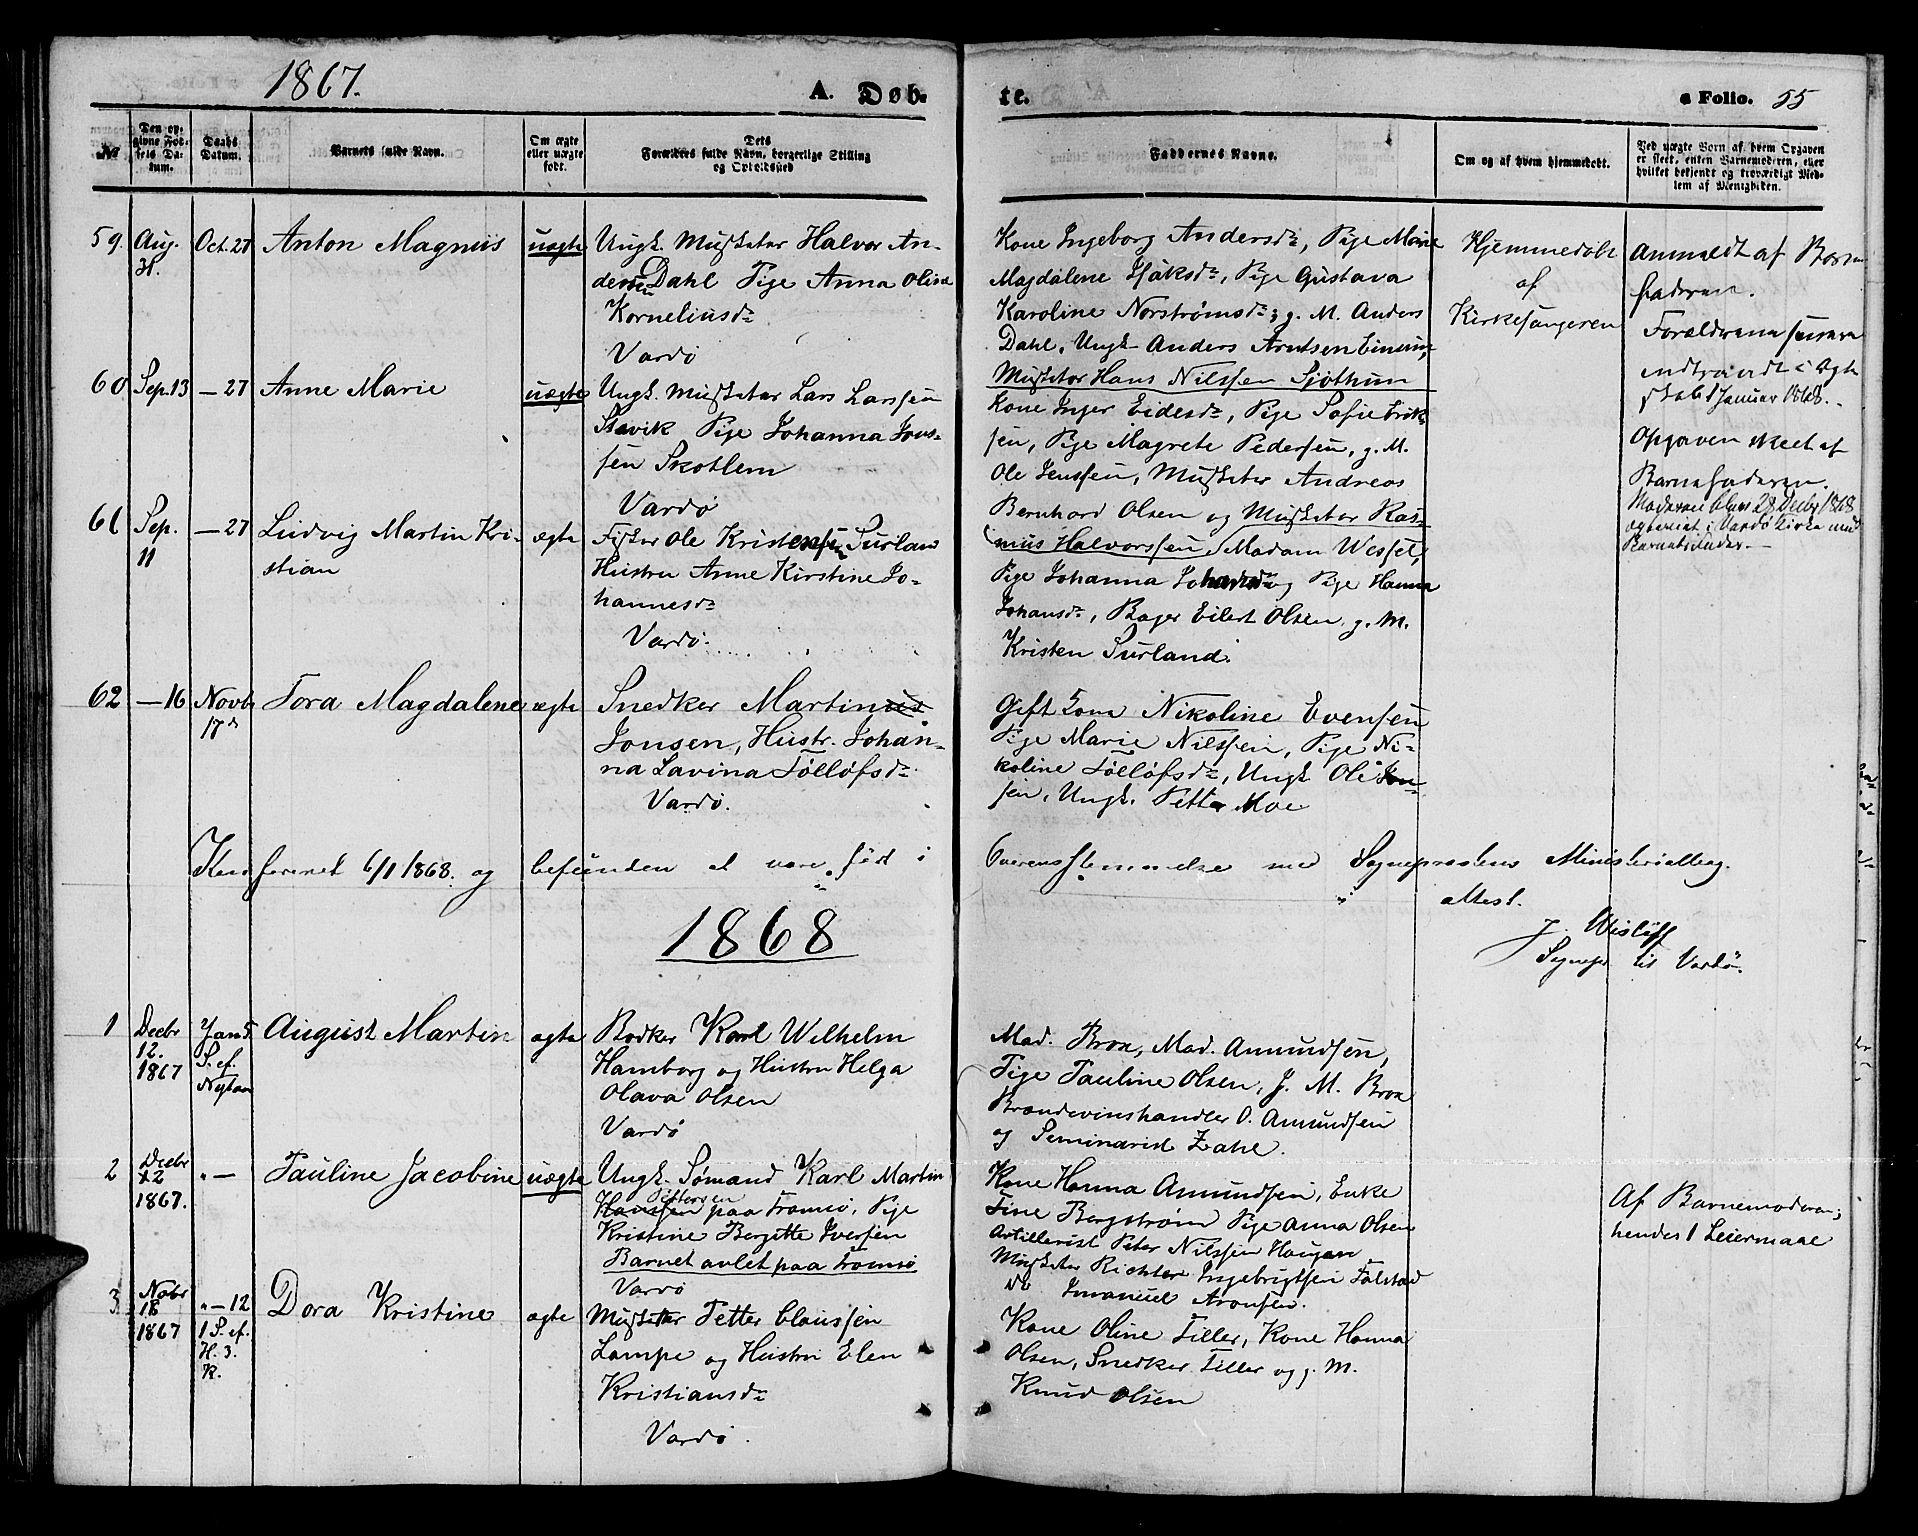 1867.
A. Døb-
te.
a Folio. 55
№
Den op-
givne Fød-
sels Da-
tum.
Daabs
Datum.
Barnets fulde Navn.
Om ægte
eller uægte
født.
Dets
Forældres fulde Navn, borgerlige Stilling
og Opholdssted
Faddernes Navne.
Om og af hvem hjemmedøbt.
Ved uægte Børn af hvem Opgaven
er skeet, enten Barnemoderen, eller
hvilket bekjendt og troværdigt Med-
lem af Menigheden.
59. Aug. 31. Oct. 27 Anton Magnus uægte
Ungk. Musketer Halvor An-
dersen Dahl Pige Anna Olina
Korneliusdr
Vardø
Kone Ingeborg Andersdr, Pige Marie
Magdalene Isaksdr, Pige Gustava
Karoline Norstrømsdr; g. M. Anders
Dahl, Ungk. Anders Arntsen
Musketer Hans Nilssen Sjøthun
Hjemmedøbt
af
Kirkesangeren
Anmeldt af Barne
faderen.
Forældrene senere
indtraadt i Ægte
skab 1 Januar 1868.
60 Sep. 13 — 27 Anne Marie uægte
Ungk. Musketer Lars Larssen
Slavik Pige Johanna Jons-
sen Skotlem
Vardø
Kone Inger Eidesdr, Pige Sofie Erik-
sen, Pige Magrete Pedersen, g. M.
Ole Jenssen, Musketer Andreas
Bernhard Olsen og Musketer Ras-
mus Halvorssen
Opgaven skeet af
Barnefaderen.
Moderen blev 28 Decbr 1868
ægteviet i Vardø Kirke med
Barnets Fader.—
61 Sep. 11 — 27 Ludvig Martin Kri-
stian
ægte
Fisker Ole Kristensen Surland
Hustru Anne Kirstine Jo-
hannesdr
Vardø
Madam Wessel,
Pige Johanna Johansdr og Pige Hanna
Johansdr, Bager Eilert Olsen, g. M.
Kristen Surland.
62 — 16 Novb. 17de Tora Magdalene ægte
Snedker Martinus
Jonsen, Hustr. Johan-
na Lavina Tølløfsdr
Vardø.
Gift Kone Nikoline Evensen
Pige Marie Nilssen, Pige Ni-
koline Tølløfsdr, Ungk. Ole Jon-
sen, Ungk. Petter Moe
Konfereret 6/1 1868. og befunden at være ført i Overensstemmelse med Sognepræstens Ministerialbog.
attest.
J. Wisløff
Sognepr. til Vardø.
1868
1 Decbr 12. 1867
Jan 5
S. ef.
Nytaar
August Martin ægte
Bødker Karl Wilhelm
Hamborg og Hustru Helga
Olava Olsen
Vardø
Mad. Brox, Mad. Amundsen,
Pige Pauline Olsen, J. M. Brox
Brændevinshandler O. Amundsen
og Seminarist Zahl.
2 Decbr 22 1867. " — Pauline Jacobine uægte
Ungk. Sømand Karl Martin
Hanssen Pettersen paa Tromsø, Pige
Kristine Bergitte Iversen
Barnet avlet paa Tromsø
Vardø
Kone Hanna Amundsen, Enke
Fine Bergstrøm Pige Anna Olsen
Artillerist Peter Nilssen Haugan
Musketer Richter Ingebrigtsen Falstad
do Imanuel Aronsen.
Af Barnemoderen;
hendes 1 Leiermaal
3. Nobr 18 1867
" — 12
1 S. ef.
H. 3.
K.
Dora Kristine ægte
Musketer Petter Claussen
Lampe og Hustru Elen
Kristiansdr
Vardø.
Kone Oline Tiller, Kone Hanna
Olsen, Snedker Tiller og g. M.
Knud Olsen